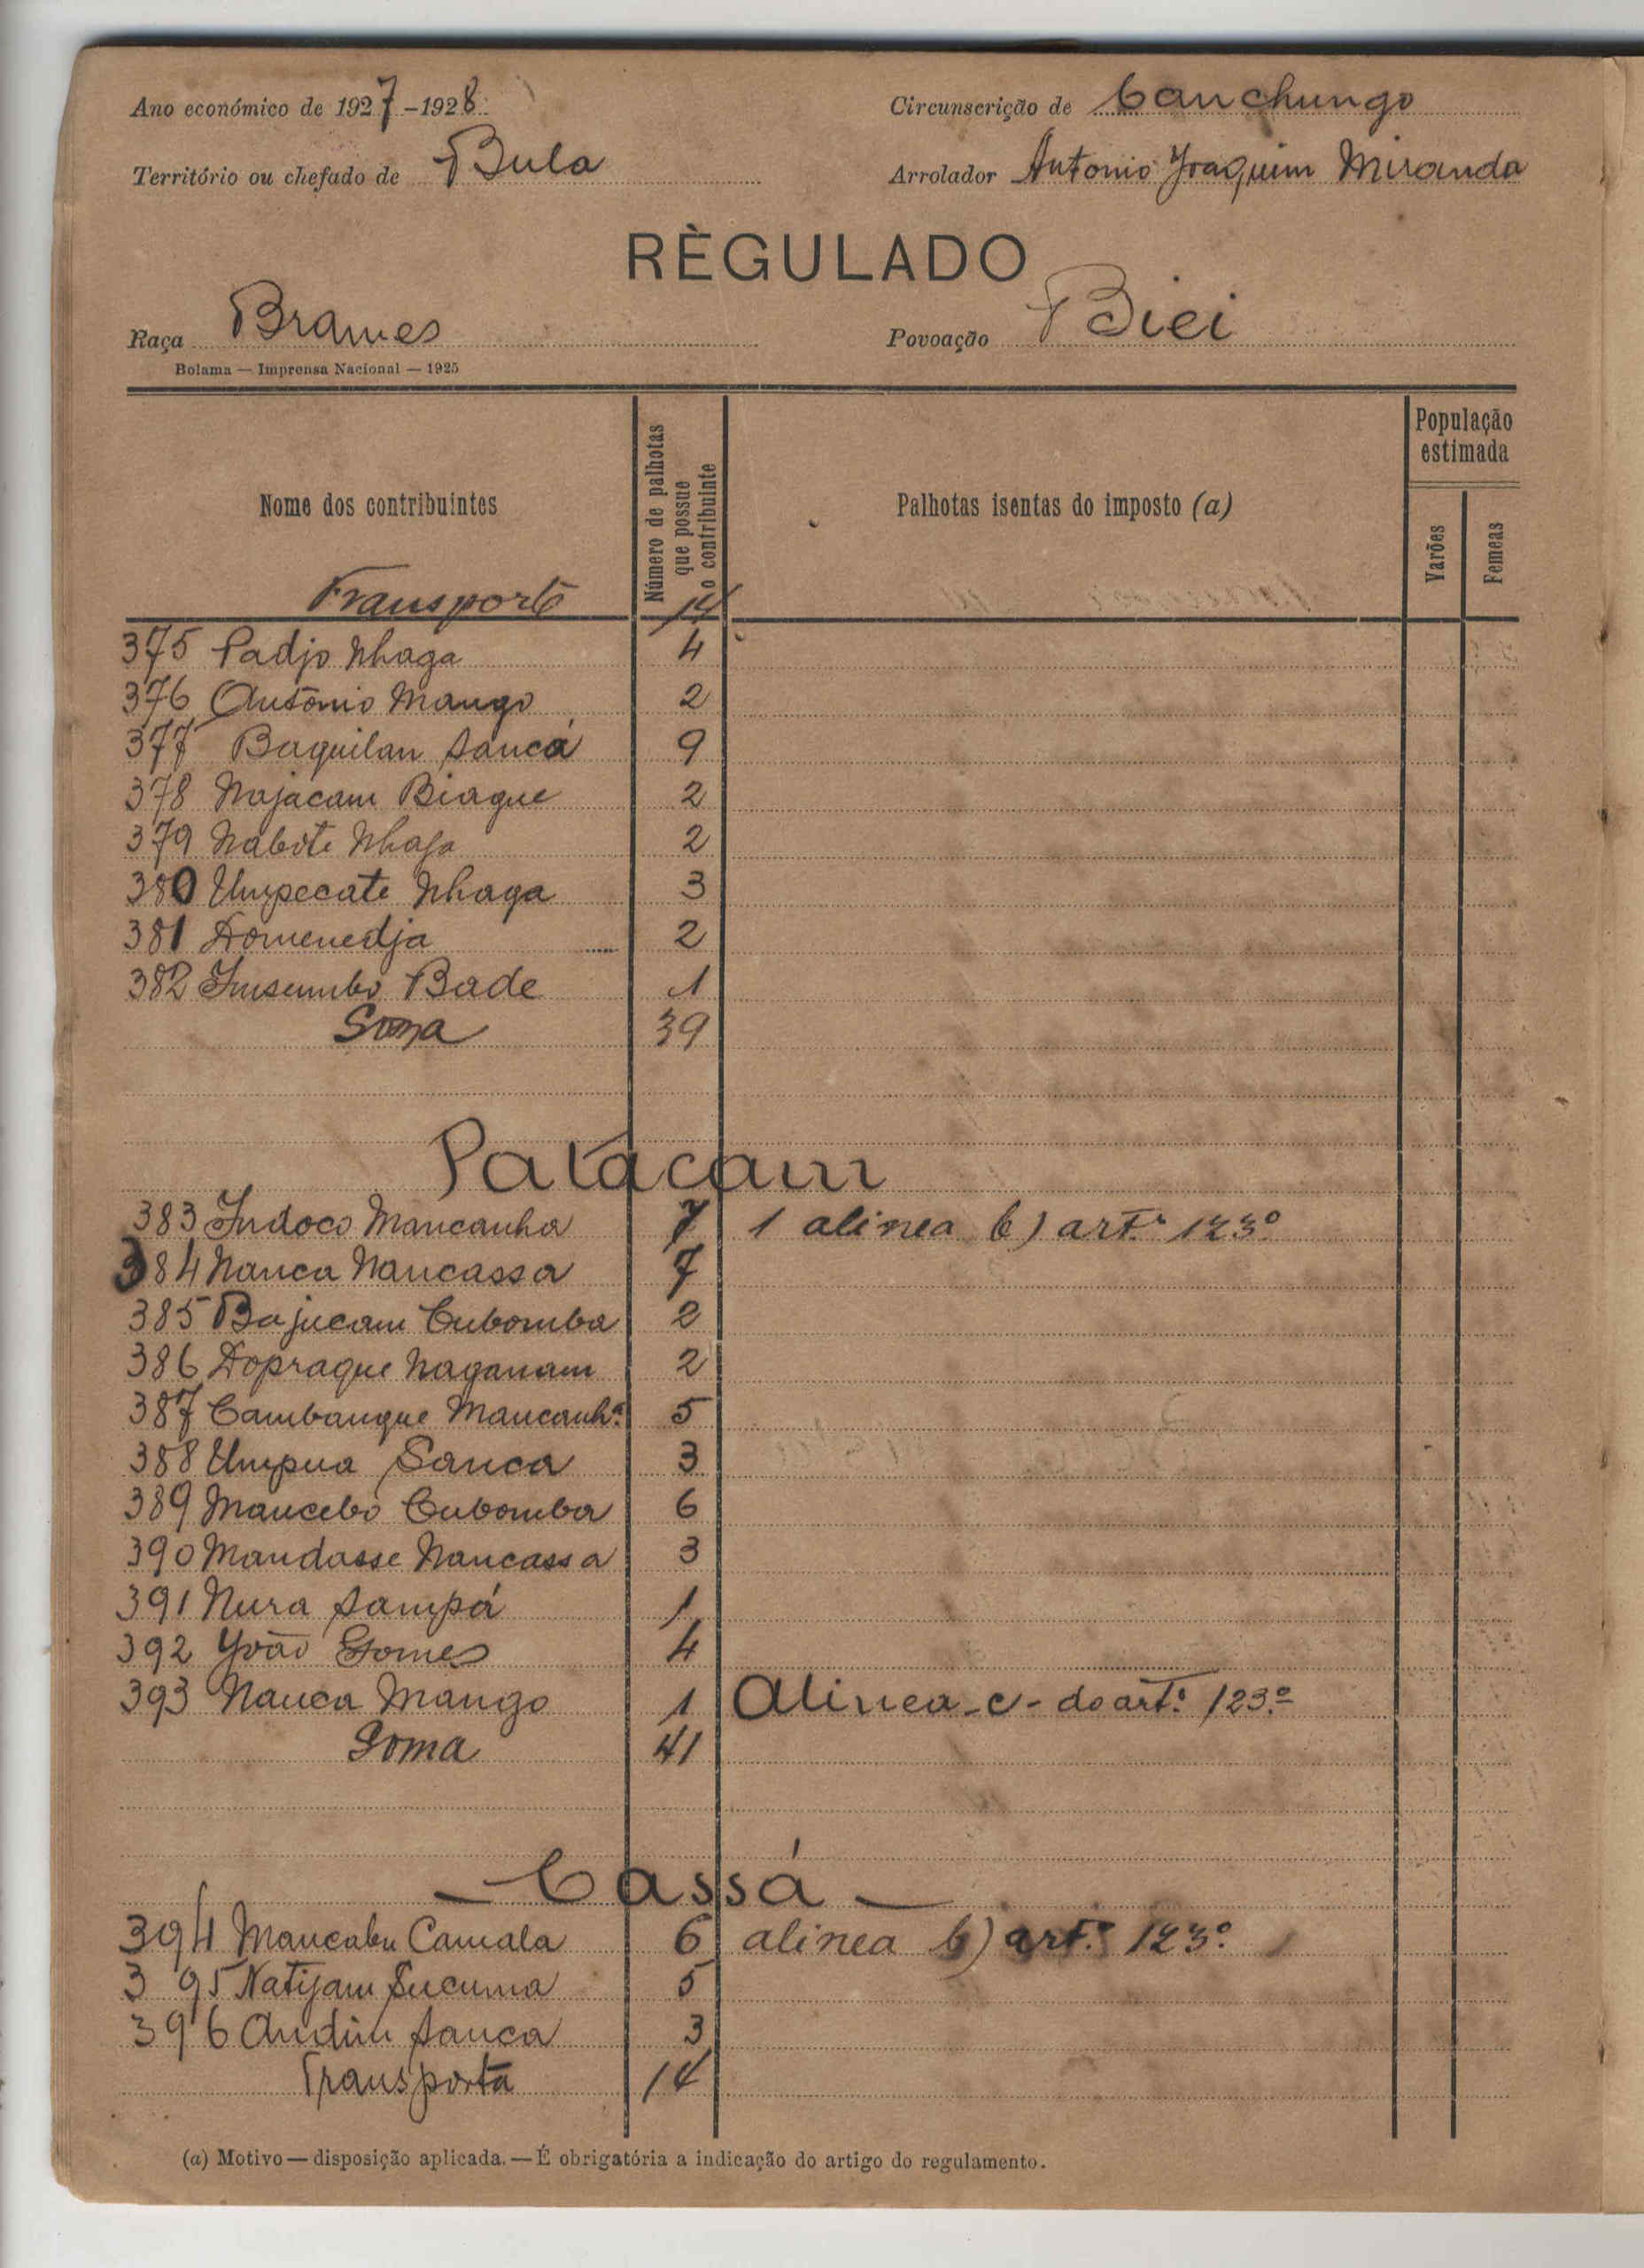 Ano económico de 1927-1928
Circunscrição de Canchungo
Território ou chefado de Bula
Arrolador Antonio Joaquim Miranda
RÈGULADO
Raça Brames
Povoação Biei
Bolama — Imprensa Nacional — 1925
Nome dos contribuintes
Número de palhotas que possue o contribuinte
Palhotas isentas do imposto (a)
População estimada
Varões
Femeas
Transporte 14
375 Padjo Nhaga 4
376 Antonio Mango 2
377 Baquilan Sancá 9
378 Najacam Biague 2
379 Nabote Nhaga 2
380 Umpecate Nhaga 3
381 Domenedja 2
382 Insumbo Bade 1
Soma 39
Patacam
383 Indoco Mancanha 7 1 alinea b) artº 123º
384 Nanca Nancassa 7
385 Bajucam Cubomba 2
386 Dopraque Naganam 2
387 Cambangue Mancanhª 5
388 Umpua Sanca 3
389 Mancebo Cubomba 6
390 Mandasse Nancassa 3
391 Nura Sampá 1
392 João Gomes 4
393 Nanca Mango 1 Alinea - c - do artº 123º
Soma 41
— Cassá —
394 Mancabu Camala 6 alinea b) artº 123º 1
395 Natijam Sucuma 5
396 Andim Sanca 3
Transporta 14
(a) Motivo — disposição aplicada. — É obrigatória a indicação do artigo do regulamento.